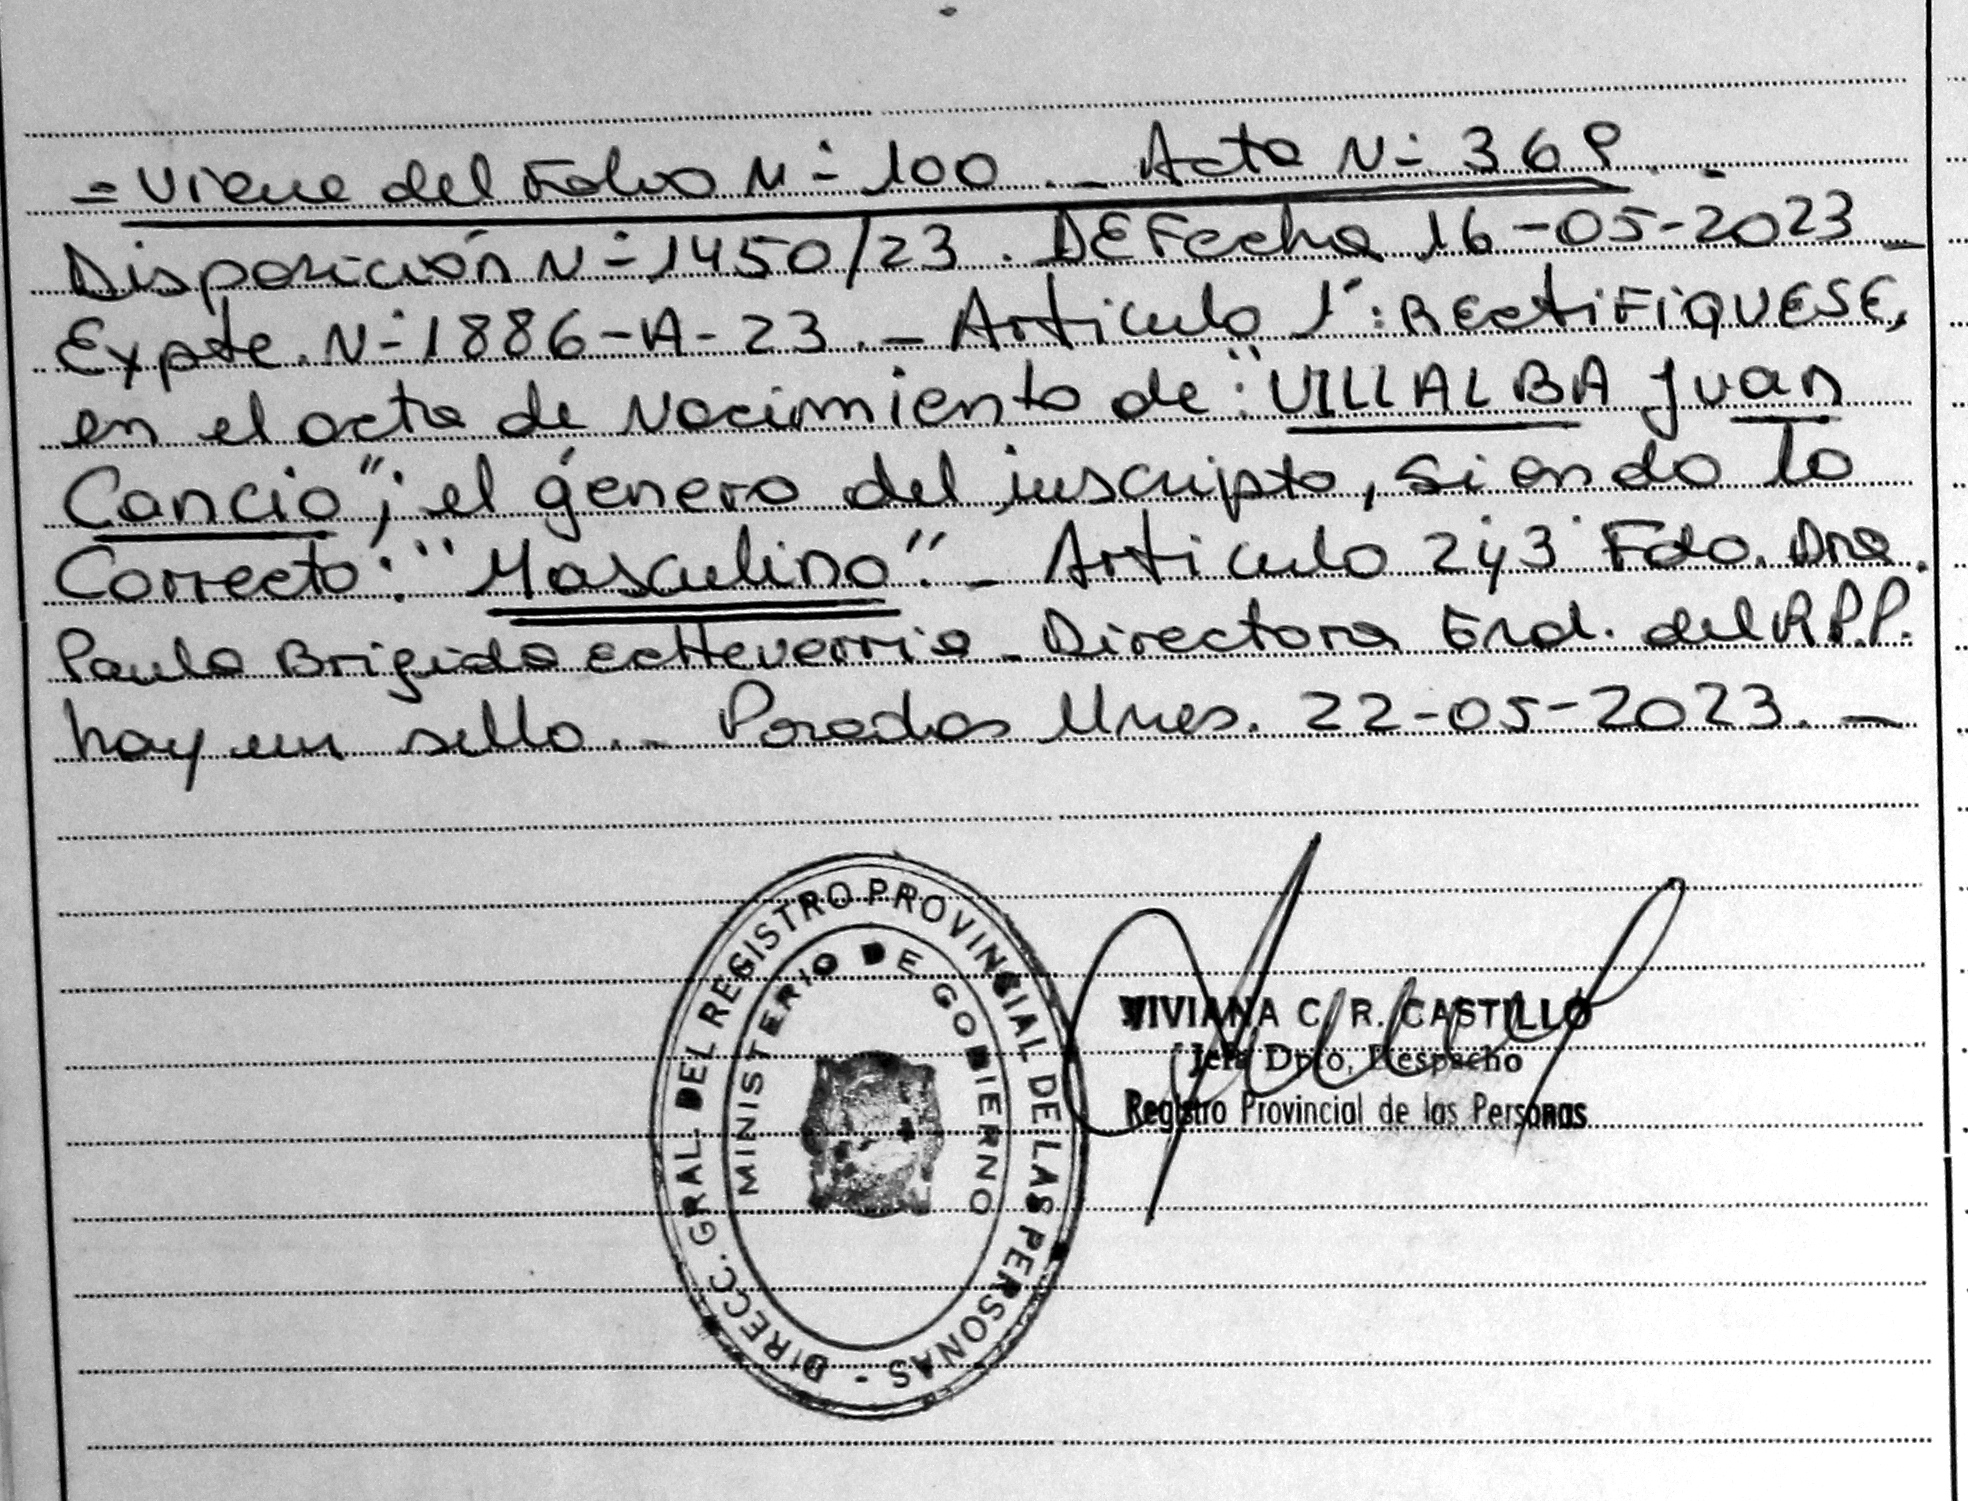 = Viene del Folio N° 100 ._ Acta N° 369 . -
Disposición N° 1450/23 . DE Fecha 16-05-2023 _
Expte. N° 1886-A-23 ._ Articulo 1°: RECTIFIQUESE,
en el acta de Nacimiento de: "VILLALBA Juan
Cancio"; el género del inscripto, siendo lo
Correcto: "Masculino". _ Articulo 2 y 3 Fdo. Dra.
Paula Brigida echeverria _ Directora Gral. del R.P.P.
hay un sello. _ Posadas Mnes. 22-05-2023. _
DIRECC. GRAL. DEL REGISTRO PROVINCIAL DE LAS PERSONAS -
MINISTERIO DE GOBIERNO
VIVIANA C. R. CASTILLO
Jefa Dpto, Despacho
Registro Provincial de las Personas